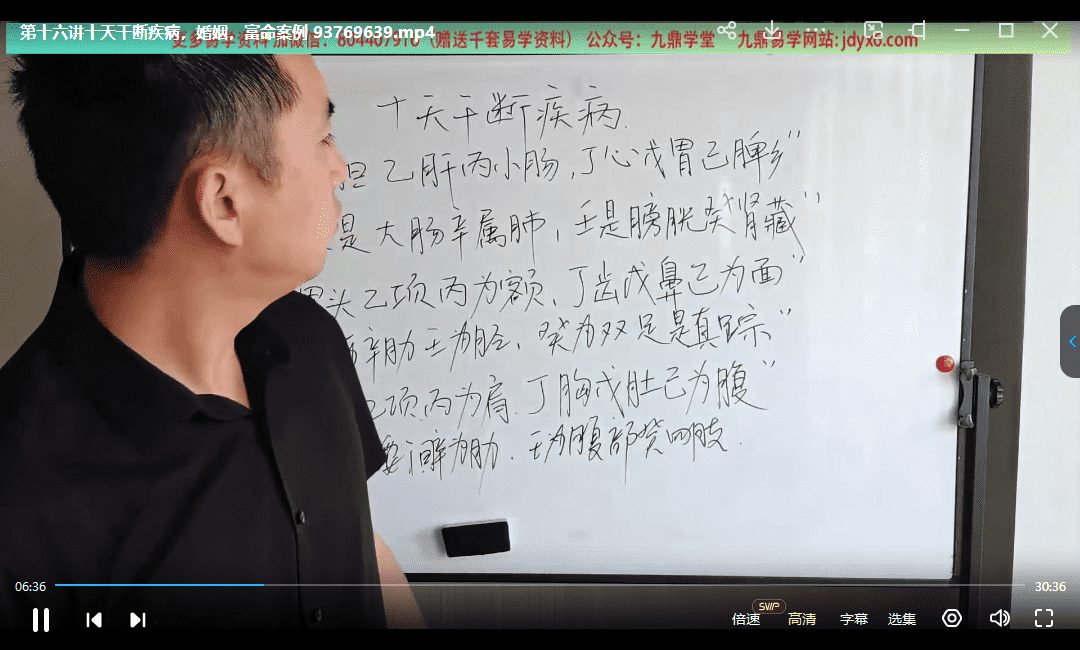 第十六讲十天干断疾病，婚姻，富命案例 93769639.mp4
更多易学资料加微信：604407910（赠送千套易学资料） 公众号：九鼎学堂 九鼎易学网站:jdyx6.com
十天干断疾病
胆乙肝丙小肠，丁心戊胃己脾乡”
是大肠辛属肺，壬是膀胱癸肾藏”
头乙项丙为额，丁齿戊鼻己为面”
辛肋壬为胫，癸为双足是真踪”
乙项丙为肩．丁胸戊肚己为腹”
辛为肋．壬为腹部癸四肢．
06:36
30:36
SVIP
倍速 高清 字幕 选集